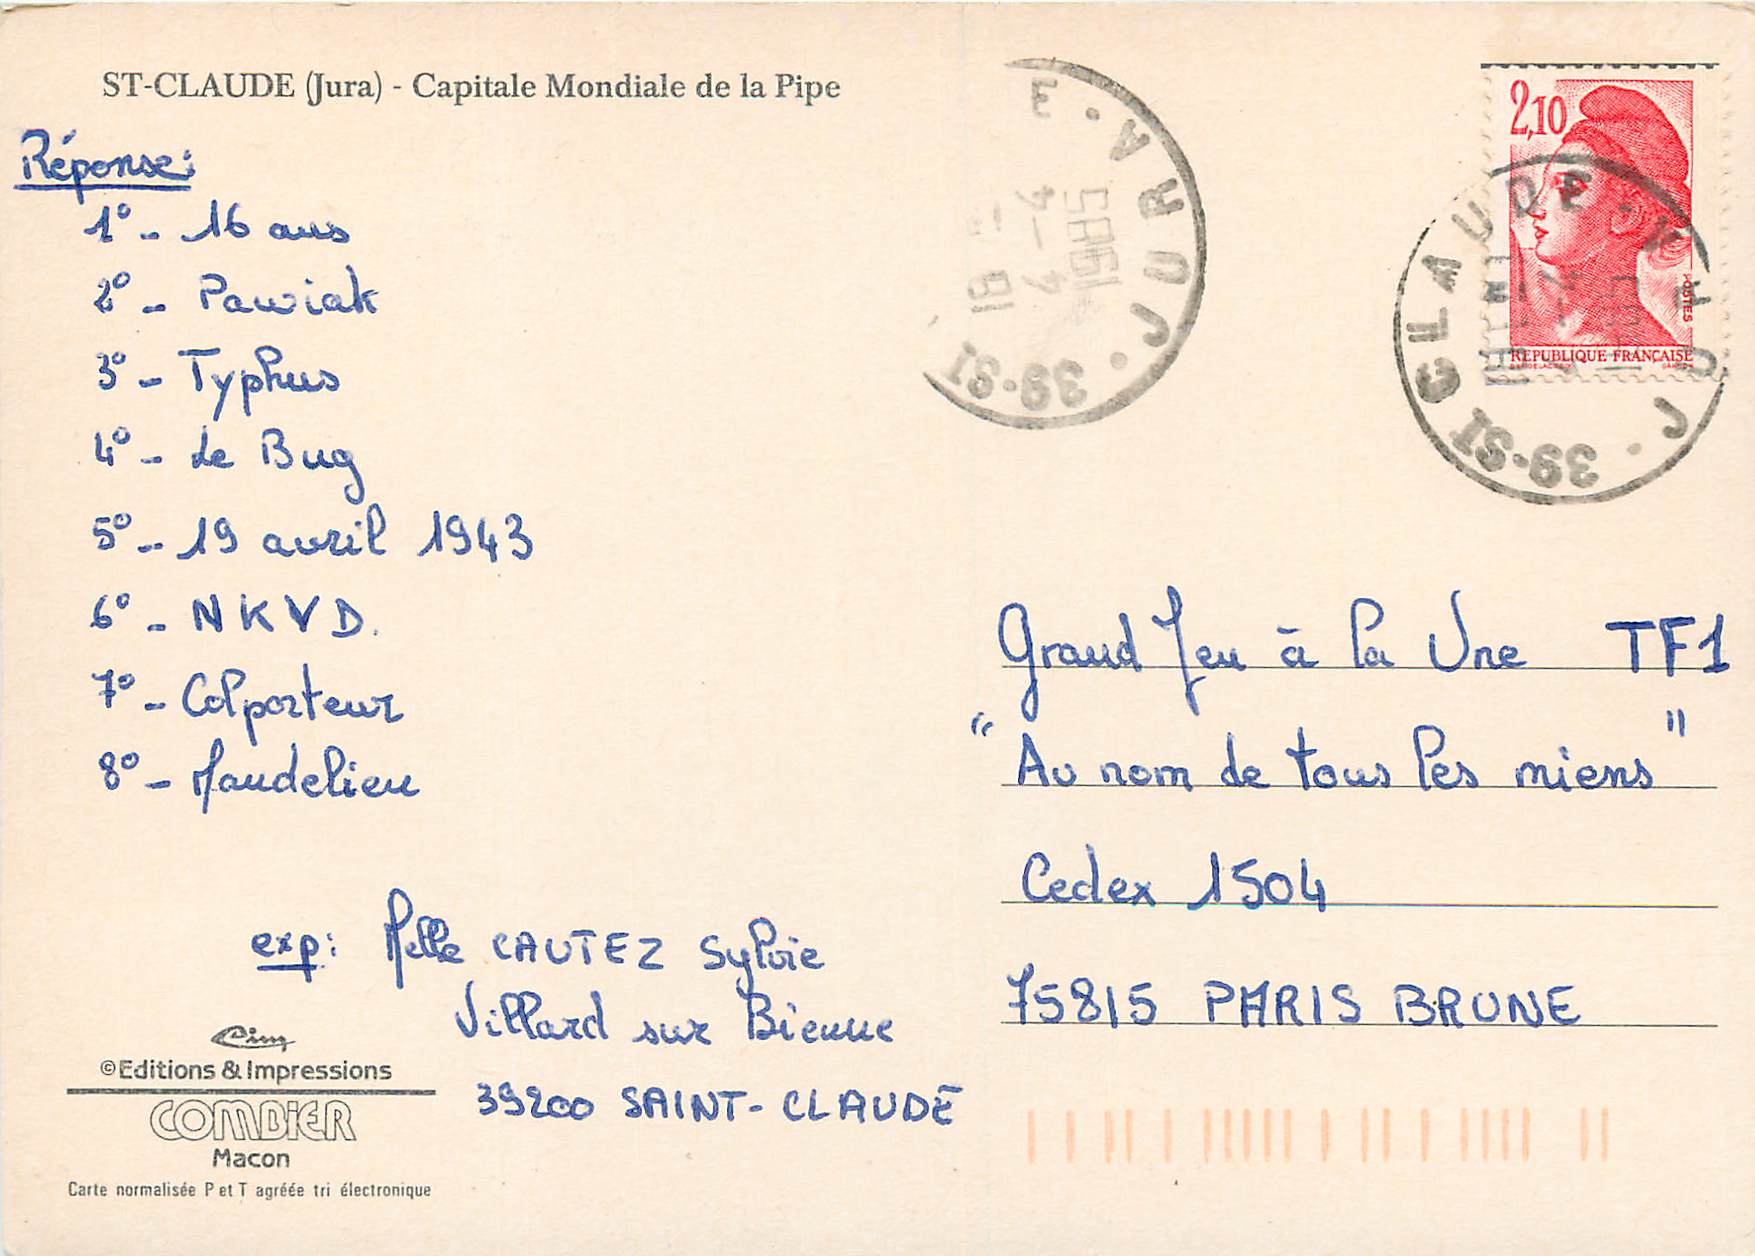 ST-CLAUDE (Jura) - Capitale Mondiale de la Pipe
Réponse:
1° - 16 ans
2° - Pawiak
3° - Typhus
4° - Le Bug
5° - 19 avril 1943
6° - NKVD.
7° - Colporteur
8° - Mandelieu
exp: Melle CAUTEZ Sylvie
Villard sur Bienne
39200 SAINT-CLAUDE
©Editions & Impressions
COMBIER
Macon
Carte normalisée P et T agréée tri électronique
39-ST E · JURA ·
18
4-4
1985
2,10
POSTES
REPUBLIQUE FRANÇAISE
39-ST CLAUDE · JURA ·
4-4
1985
Grand Jeu à la Une TF1
"Au nom de tous les miens"
Cedex 1504
75815 PARIS BRUNE